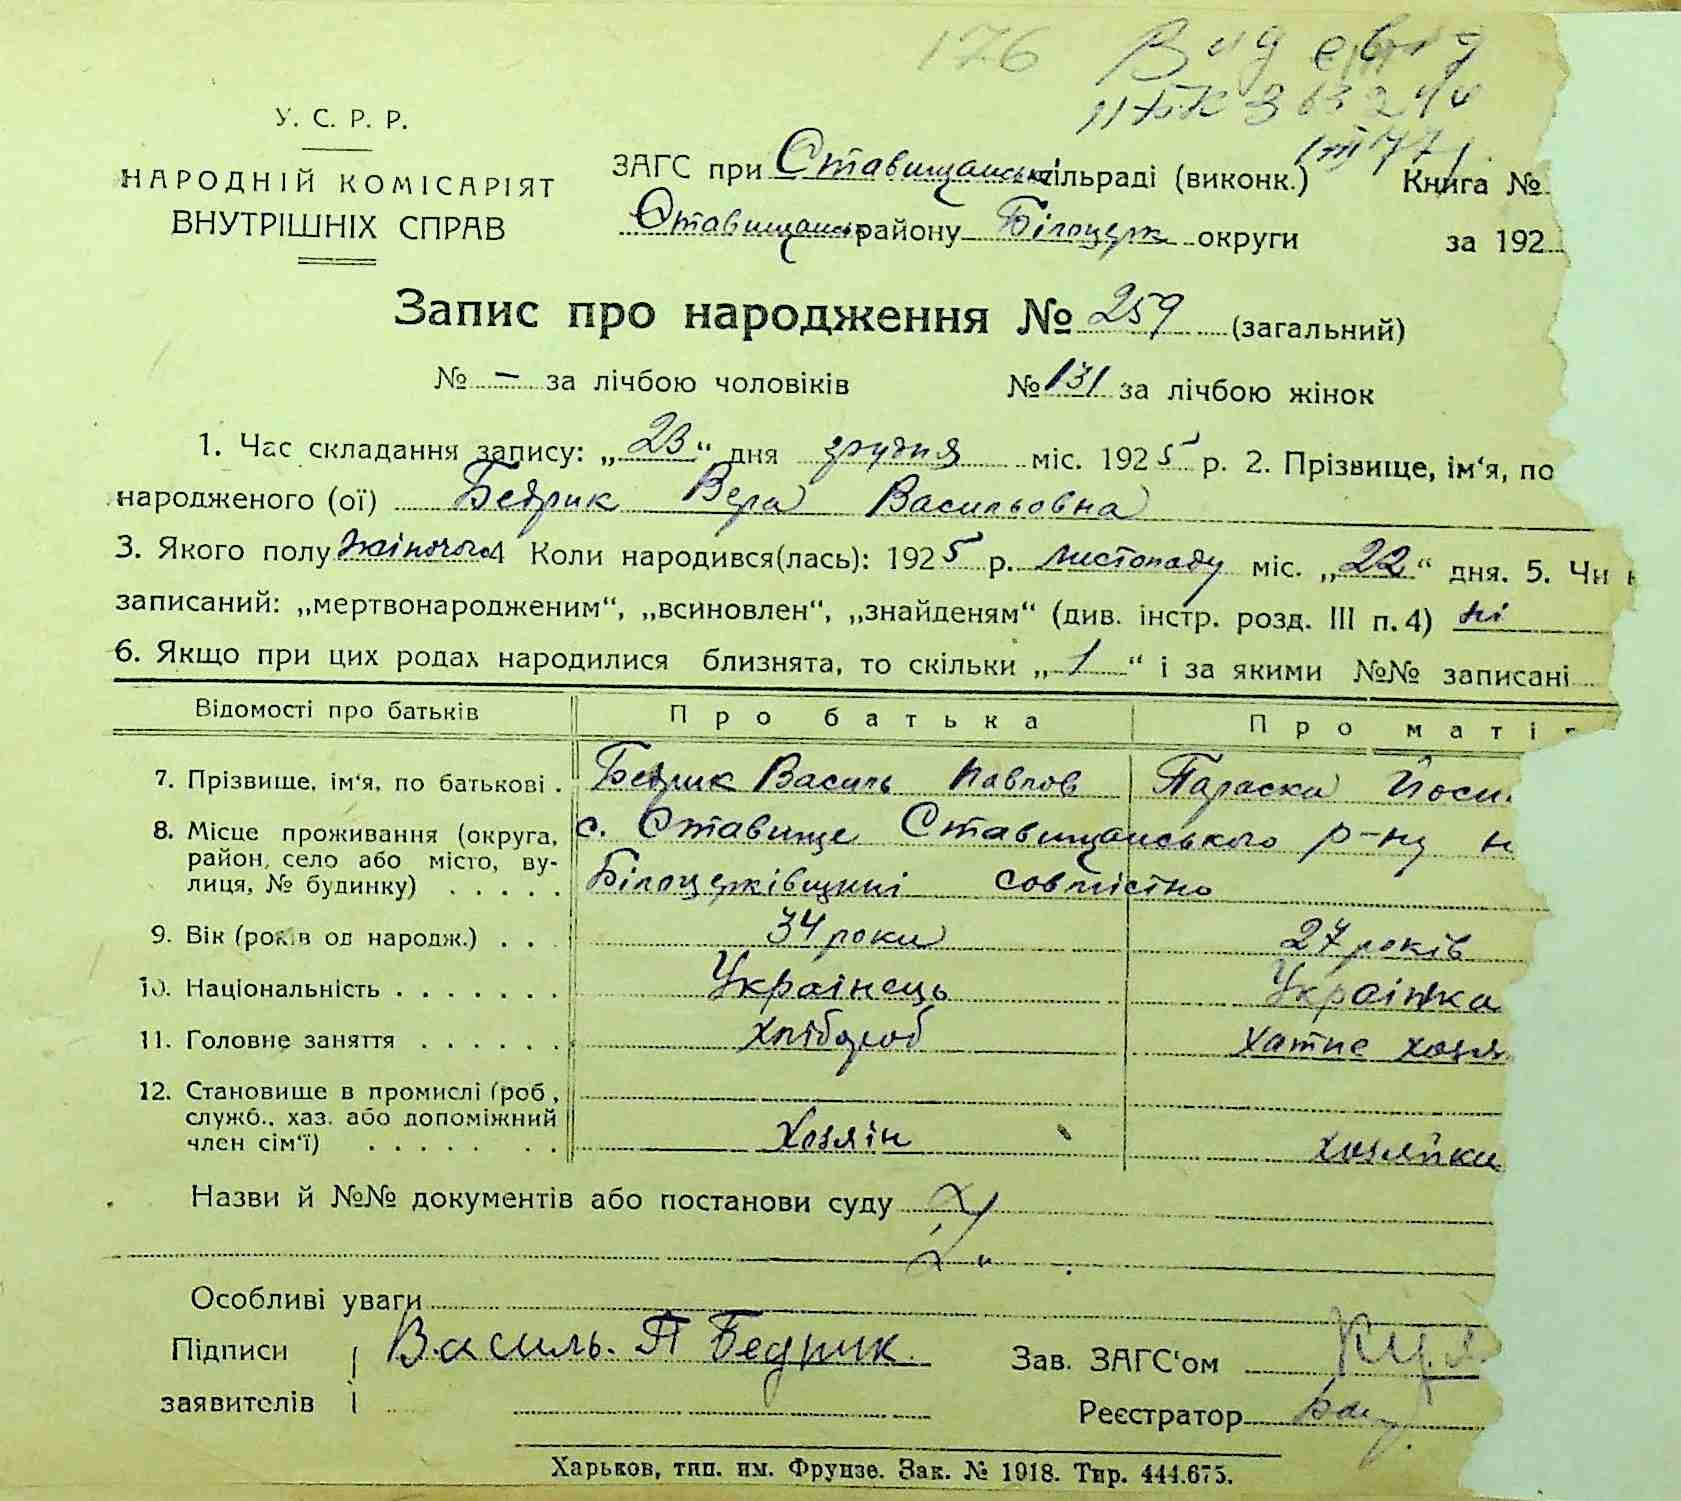 176 Вид свид
II БК 363244
У. С. Р. Р.
НАРОДНІЙ КОМІСАРІЯТ
ВНУТРІШНІХ СПРАВ
ЗАГС при Ставищанськ сільраді (виконк.) Книга №
Ставищансь району Білоцерк округи за 192
Запис про народження № 259 (загальний)
№ — за лічбою чоловіків № 131 за лічбою жінок
1. Час складання запису: „23“ дня грудня міс. 1925 р. 2. Прізвище, ім‘я, по
народженого (ої) Бедрик Вера Васильовна
3. Якого полу жіночого 4 Коли народився(лась): 1925 р. листопаду міс. „22“ дня. 5. Чи
записаний: „мертвонародженим“, „всиновлен“, „знайденям“ (див. інстр. розд. III п. 4) ні
6. Якщо при цих родах народилися близнята, то скільки „1“ і за якими №№ записані
Відомості про батьків Про батька Про маті
7. Прізвище, ім‘я, по батькові . Бедрик Василь Павлов Параска Йоси
8. Місце проживання (округа, район, село або місто, вулиця, № будинку) . . . . .
с. Ставище Ставищанського р-ну
Білоцерківщині совмістно
9. Вік (років од народж.) . . . 34 роки 27 років
10. Національність . . . . . . . Українець Українка
11. Головне заняття . . . . . . хлібороб хатнє хазя
12. Становище в промислі (роб, служб., хаз. або допоміжний член сім‘ї) . . . . . . .
Хазяін хазяйка
Назви й №№ документів або постанови суду
Особливі уваги
Підписи Василь. П Бедрик Зав. ЗАГС‘ом
заявителів Реєстратор
Харьков, тип. им. Фрунзе. Зак. № 1918. Тир. 444.675.